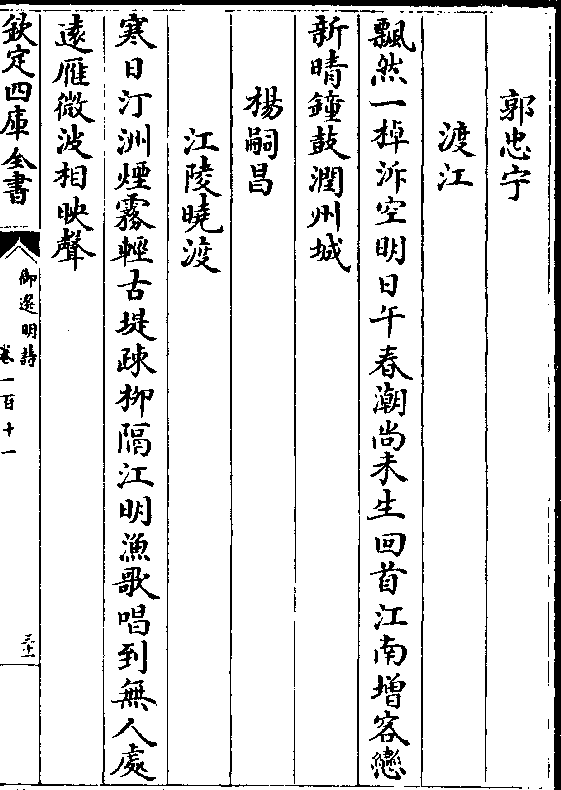 郭忠宁
渡江
飄然一棹泝空明日午春潮尚未生回首江南增客戀
新晴鐘鼓潤州城
楊嗣昌
江陵曉渡
寒日汀洲煙霧輕古堤疎柳隔江明漁歌唱到無人處
遠雁微波相映聲
欽定四庫全書
御選明詩
卷一百十一